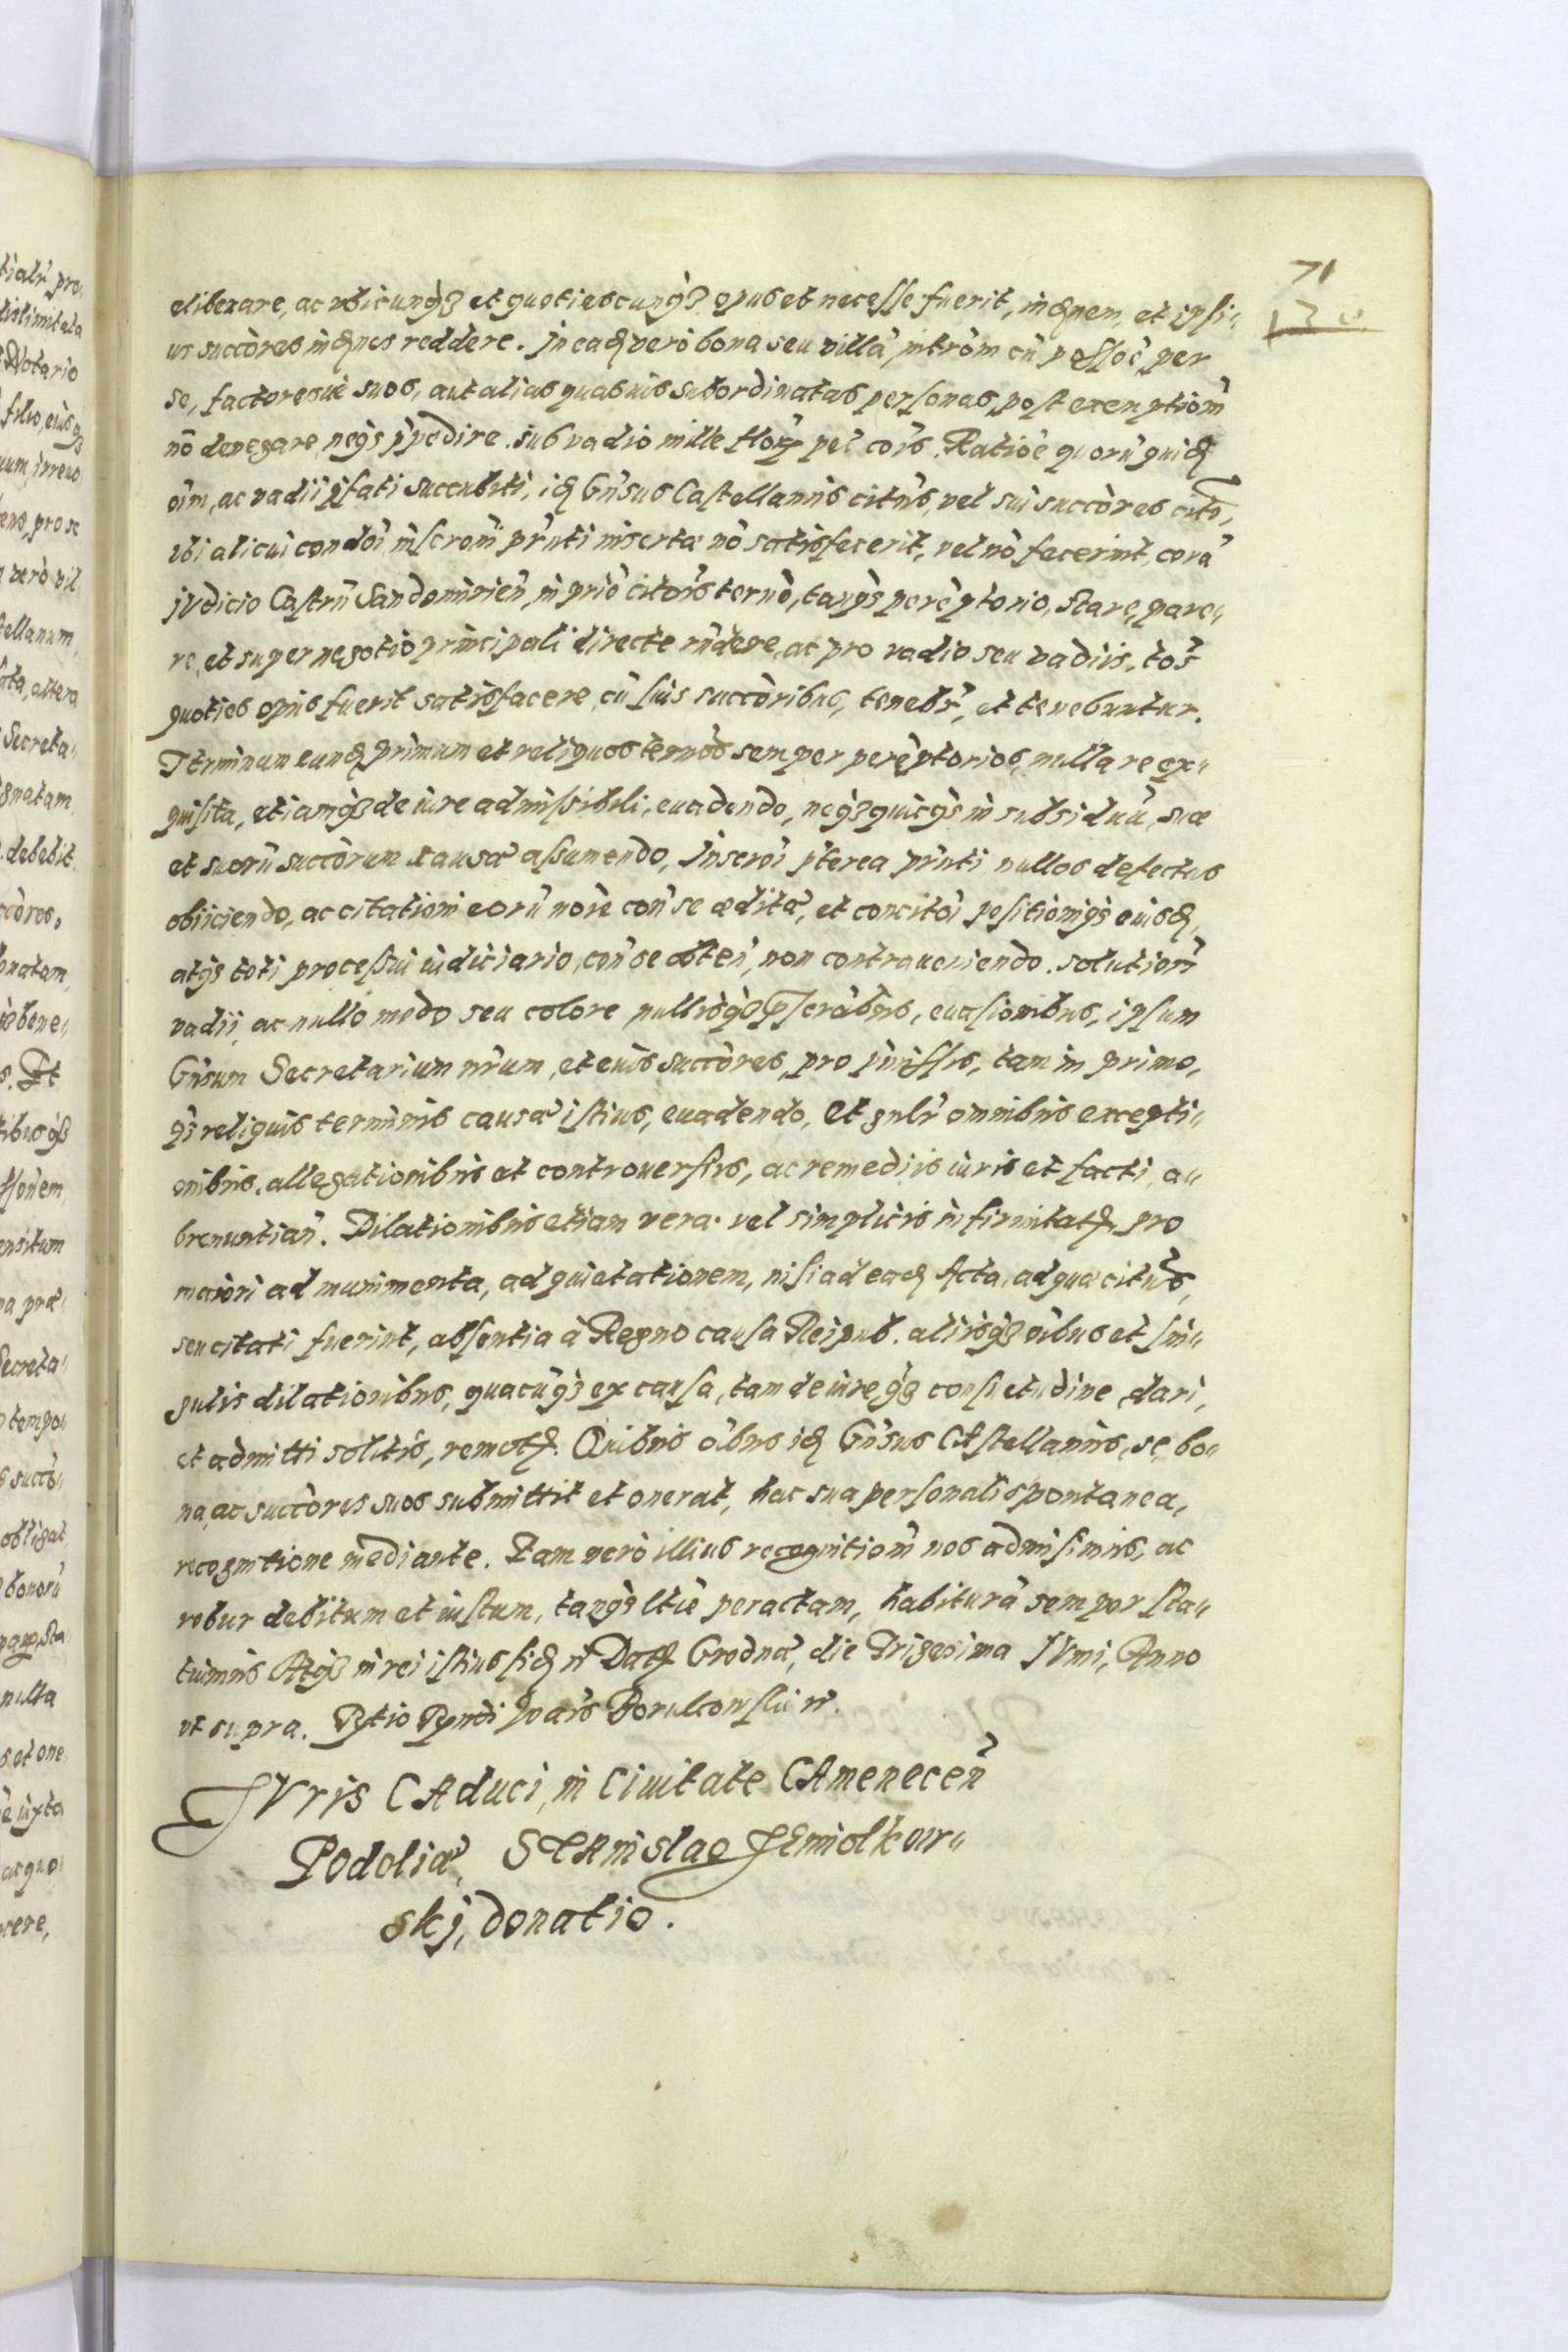 71
130
eliberare, ac ubicunqз et quotiescunqз opus et necesse fuerit, indemnem, et ipsi„
us succores indemnes reddere. In eadem verò bona seu villã, intrōm cũ possoē, per
se, factoresuè suos, aut alias quasuis subordinatas personas, post exemptiōm
nō denegare, neqз impedire. sub vadio mille flor pel coīs. Ratiōe quorũ quidem
oīm, ac vadii pfati succubiti, idem Gnsus Castellanus citũs, vel sui succores citi,
ubi alicui condōi inscrōni pñti insertæ nō satisfecerit, vel nō fecerint, corã
iudicio Castrñ Sandomirień, in priō citōis termō, tanqз perēptorio, stare, pare„
re, et super negotio principali directe rñdere, ac pro vadio seu vadiis, toś
quoties opus fuerit satisfacere, cũ suis succoribus, tenebř, et tenebuntur.
Terminum eundem primum et reliquos termōs semper perēptorios, nulla re ex„
quisita, etiamqз de iure admissibili, euadendo, neqз quicqз in subsidiũ, suæ
et suorũ succorum causæ assumendo, Inscrōi pterea pñti nullos defectus
obiiciendo, ac citationi eorũ noīe coñ se æditæ, et concitōi positioniqз eiusdem,
atqз toti processui iudiciario, coñ se obteñ, non contraueniendo. solutioñ
vadii, ac nullo modo seu colore nullisqз pscrābus, euasionibus, ipsum
Gnsum Secretarium nrum, et eius succores, pro pmissis, tam in primo,
qз reliquis terminis causæ istius, euadendo, Et gnlř omnibus excepti„
onibus, allegationibus et controuersiis, ac remediis iuris et facti, a„
brenuntiań. Dilationibus etiam vera vel simplicis infirmitatem, pro
maiori ad munimenta, ad quietationem, nisi ad eadem Acta, ad quæ citũs,
seu citati fuerint, absentia à Regno causa Reipub. aliisqз oībus et sin„
gulis dilationibus, quacũqз ex causa, tam de iure, qз consuetudine dari,
et admitti solitis, remotem. Quibus oībus idem Gnsus CAstellanus, se, bo„
na, ac succores suos submittit et onerat, hac sua personali spontanea,
recognitione mediante. Eam verò illius recognitioñ nos admisimus, ac
robur debitum et iustum, tanqз ltiē peractam, habiturã semper sta„
tuimus Atqз in rei istius fidem ñ Datem Grodnæ, die Trigesima IUnii, Anno
ut supra.
IVris CAduci, in Ciuitate CAmeneceñ
Podoliæ, STAnislao IEmiolkow„
skj, donatio.